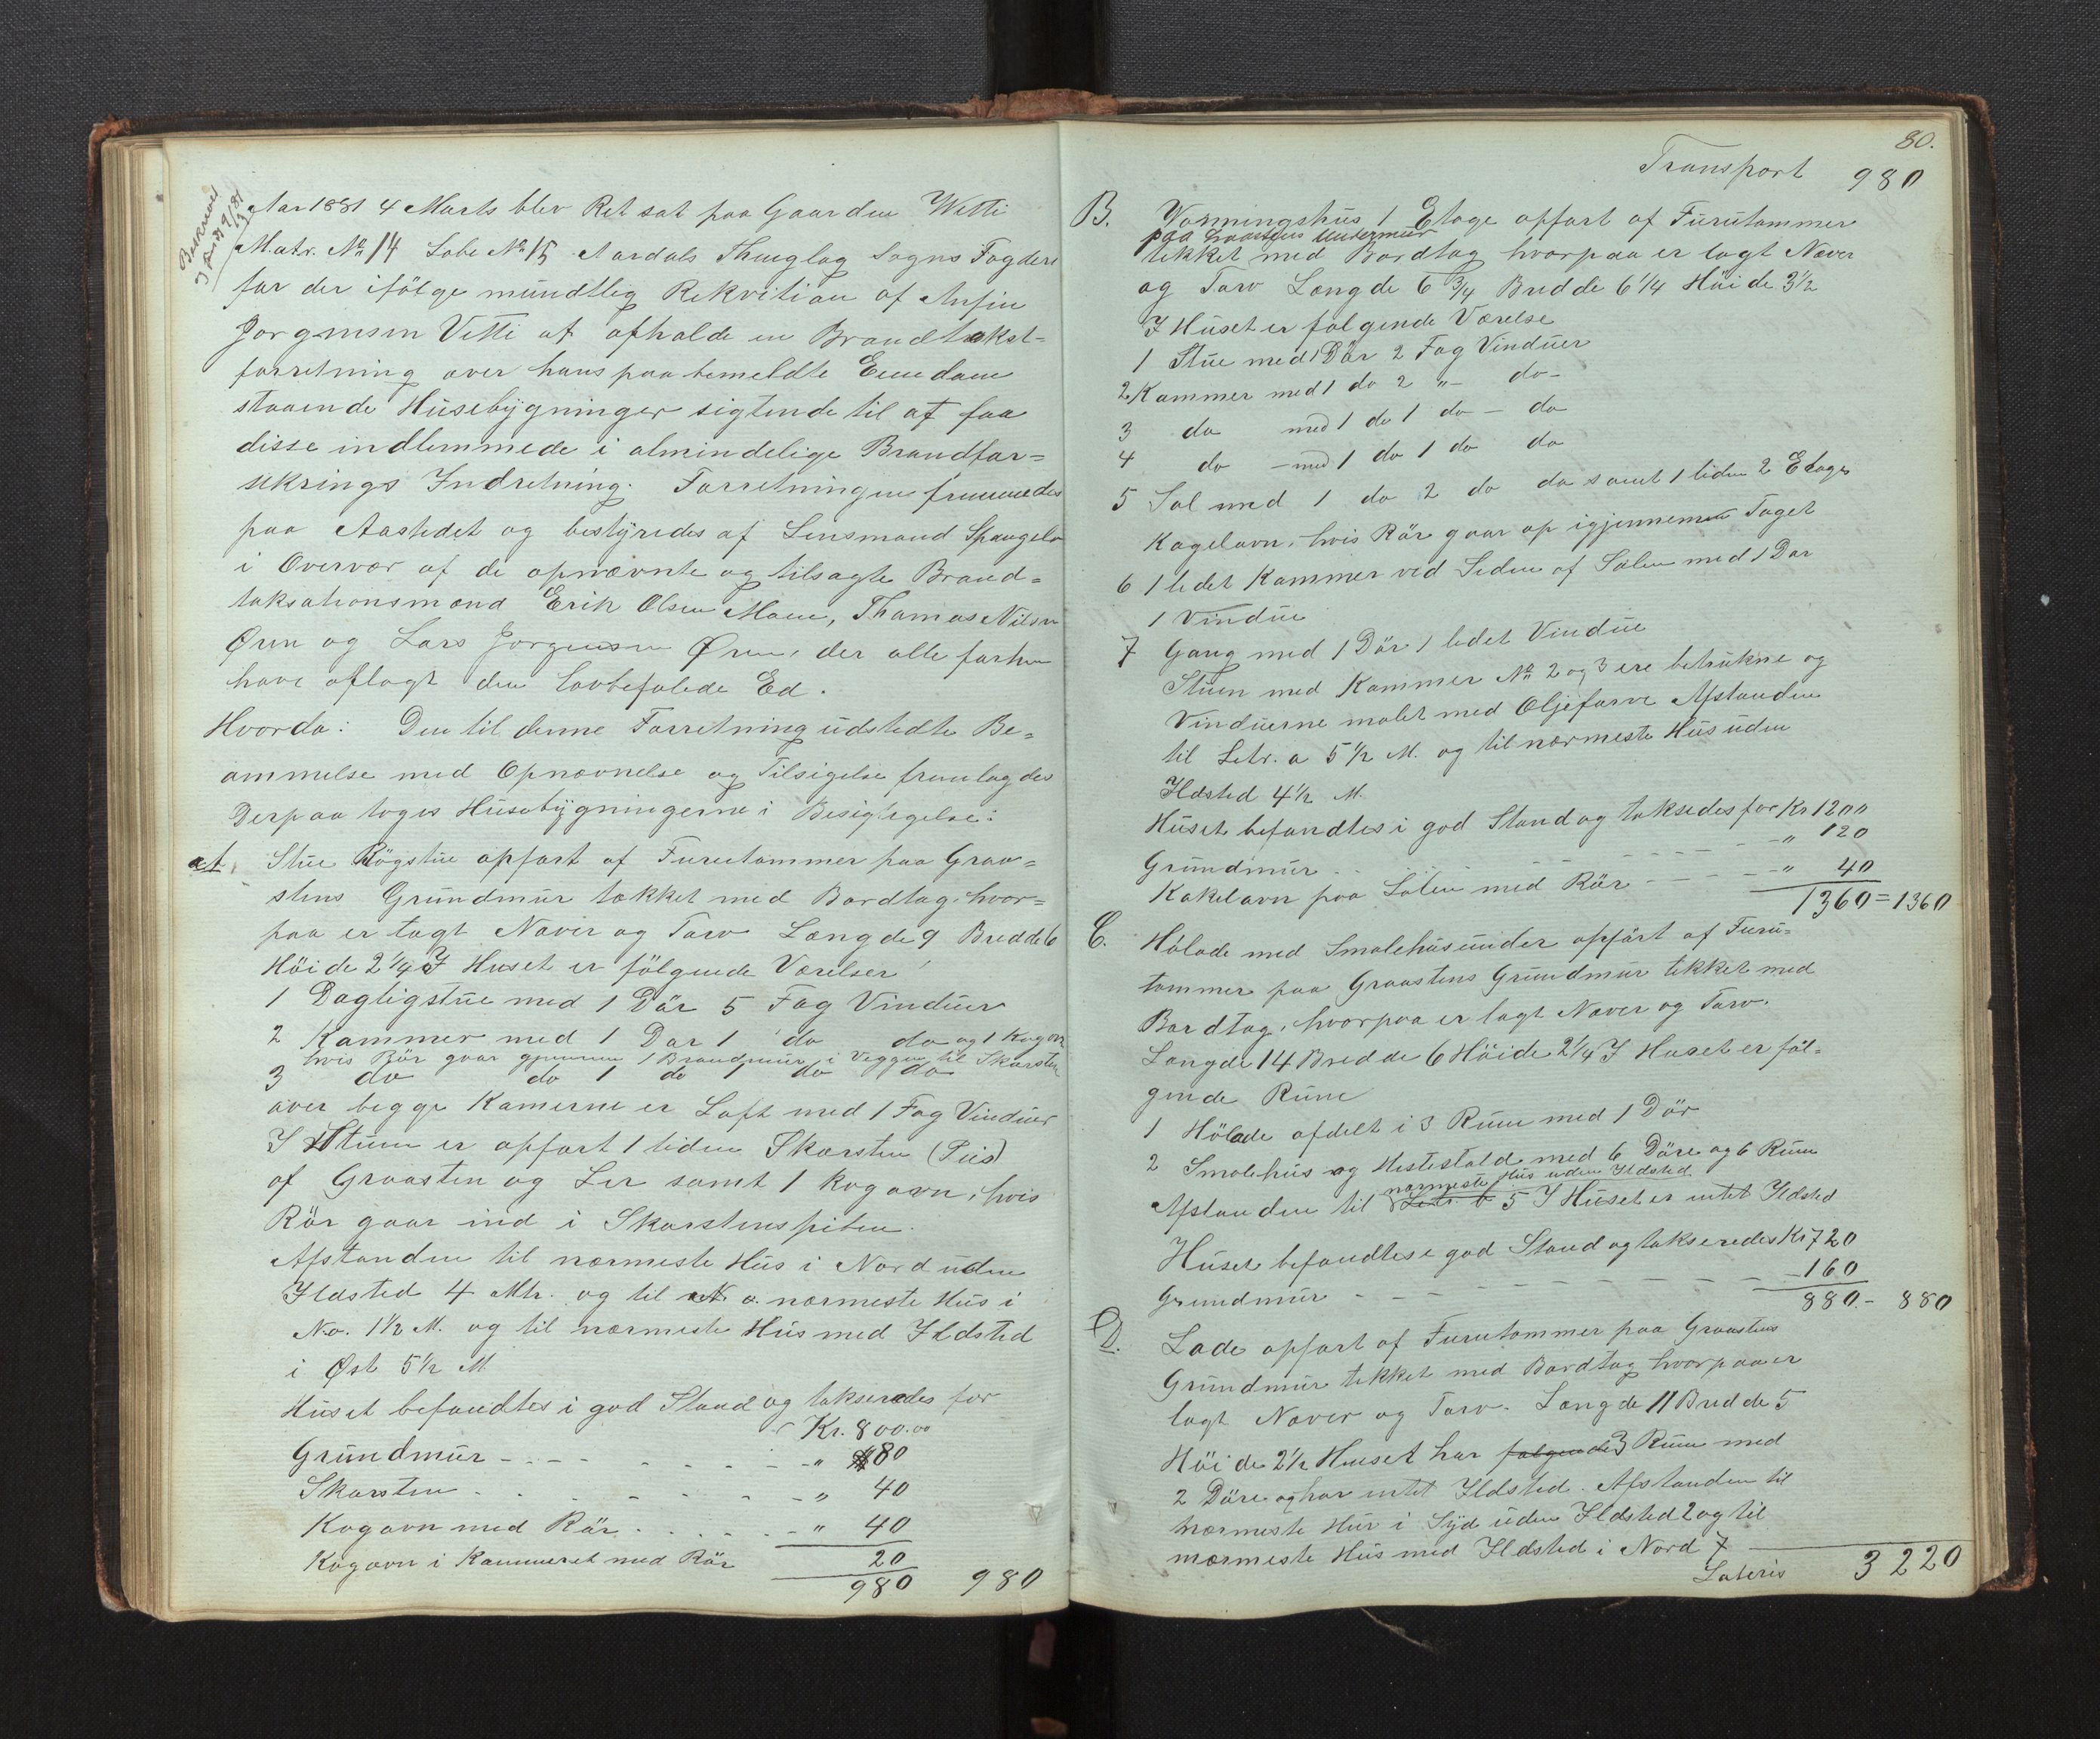 Beskrevet
Aar 1881 4 Marts blev Ret sat paa Gaarden Vetti
Matr. No 14 Løbe No 15 Aardals Thinglag Sogns Fogderi
for der ifølge mundtlig Rekvition af Anfin
Jørgensen Vetti at afholde en Brandtakst=
forretning over hans paa bemeldte Eiendom
staaende Husebygninger sigtende til at faa
disse indlemmede i almindelige Brandfor=
sikrings Indretning. Forretningen fremmedes
paa Aastedet og bestyredes af Lensmand Spangelo
i Overvær af de opnævnte og tilsagte Brand=
taksationsmænd Erik Olsen Moen, Thomas Nilsen
Øren og Lars Jørgensen Øren, der alle forhen
have aflagt den lovbefalede Ed.
Hvorda: Den til denne Forretning udstedte Be=
rammelse med Opnævnelse og Tilsigelse fremlagdes
Derpaa toges Husebygningerne i Besigtigelse:
A. Stue Røgstue opført af Furutømmer paa Graa=
stens Grundmur tækket med Bordtag, hvor=
paa er lagt Næver og Torv Længde 9 Bredde 6
Høide 2 1/4 I Huset er følgende Værelser
1 Dagligstue med 1 Dør 5 Fag Vinduer
2 Kammer med 1 Dør 1 do do og 1 Kogovn
hvis Rør gaar gjennem 1 Brandmur i Væggen til Skorsten
3 do do 1 do 1 do do
over begge Kamerne er Loft med 1 Fag Vinduer
I Stuen er opført 1 liden Skorsten (Peis)
af Graasten og Ler samt 1 Kogovn, hvis
Rør gaar ind i Skorstenspiben.
Afstanden til nærmeste Hus i Nord uden
Ildsted 4 Mtr. og til nærmeste Hus i
N.o. 1 1/2 M. og til nærmeste Hus med Ildsted
i Øst 5 1/2 M
Huset befandtes i god Stand og takseredes for
Kr. 800.00
Grundmur - - - - - - - " 80
Skorsten - - - - - - - " 40
Kogovn med Rør - - - - - " 40
Kogovn i Kammeret med Rør 20
980 980
80.
Transport 980
B. Vaaningshus 1 Etage opført af Furutømmer
paa Graastens Undermur
tekket med Bordtag hvorpaa er lagt Næver
og Torv Længde 6 3/4 Bredde 6 1/4 Høide 3 1/2
I Huset er følgende Værelse
1 Stue med 1 Dør 2 Fag Vinduer
2 Kammer med 1 do 2 " - do -
3 do med 1 do 1 do - do
4 do - med 1 do 1 do do
5 Sal med 1 do 2 do do samt 1 liden 2 Etages
Kagelovn, hvis Rør gaar op igjennem Taget
6 1 lidet Kammer ved Siden af Salen med 1 Dør
1 Vindue
7 Gang med 1 Dør 1 lidet Vindue
Stuen med Kammer No 2 og 3 ere betrukne og
Vinduerne malet med Oljefarve Afstanden
til Letr. a 5 1/2 M. og til nærmeste Hus uden
Ildsted 4 1/2 M.
Huset befandtes i god Stand og taksedes for Kr 1200
Grundmur - - - - - - - " 120
Kakelovn paa Salen med Rør - - - - - " 40
1360 = 1360
C. Hølade med Smalehus under opført af Furu=
tømmer paa Graastens Grundmur tekket med
Bordtag, hvorpaa er lagt Næver og Torv.
Længde 14 Bredde 6 Høide 2 1/4 I Huset er føl=
gende Rum
1 Hølade afdelt i 3 Rum med 1 Dør
2 Smalehus og Hestestald med 6 Døre og 6 Rum
nærmeste Hus uden Ildsted
Afstanden til Letr. b 5 I Huset er intet Ildsted
Huset befandtes i god Stand og takseredes Kr 720
Grundmur - - - - - - - - 160
880. - 880
D. Lade opført af Furutømmer paa Graastens
Grundmur tekket med Bordtag hvorpaa er
lagt Næver og Torv. Længde 11 Bredde 5
Høide 2 1/2 Huset har følgende 3 Rum med
2 Døre og har intet Ildsted. Afstanden til
nærmeste Hus i Syd uden Ildsted 2 og til
nærmeste Hus med Ildsted i Nord 7
Lateris 3220